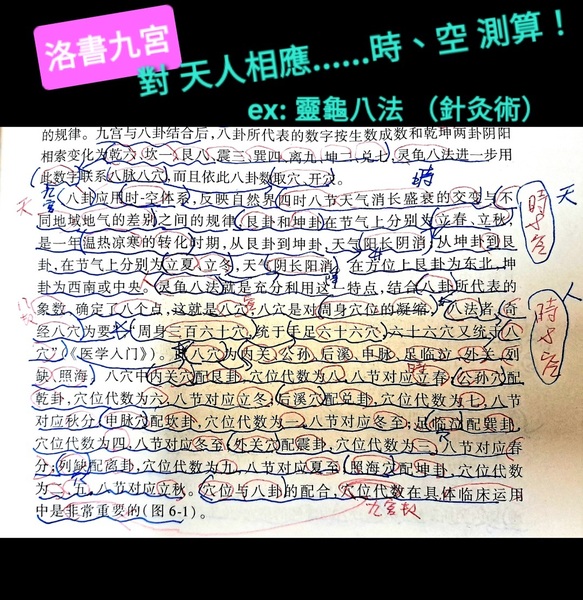 洛書九宮
對 天人相應......時、空 測算！
ex: 靈龜八法 （針灸術）
的规律。九宫与八卦结合后，八卦所代表的数字按生数成数和乾坤两卦阴阳
相索变化为乾六、坎一、艮八、震三、巽四、离九、坤二、兑七，灵龟八法进一步用
此数字联系八脉八穴，而且依此八卦数取穴、开穴。
時
九宮
天
八卦应用时-空体系，反映自然界四时八节天气消长盛衰的交变与不
同地域地气的差别之间的规律。艮卦和坤卦在节气上分别为立春、立秋，
是一年温热凉寒的转化时期，从艮卦到坤卦，天气阳长阴消，从坤卦到艮
卦，在节气上分别为立夏、立冬，天气阴长阳消。在方位上艮卦为东北，坤
卦为西南或中央。灵龟八法就是充分利用这一特点，结合八卦所代表的
象数，确定了八个点，这就是八穴。八穴是对周身穴位的凝缩，八法者，奇
经八穴为要，周身三百六十穴，统于手足六十六穴，六十六穴又统于八
穴”（《医学入门》）。八穴为内关、公孙、后溪、申脉、足临泣、外关、列
缺、照海。八穴中内关穴配艮卦，穴位代数为八，八节对应立春；公孙穴配
乾卦，穴位代数为六，八节对应立冬；后溪穴配兑卦，穴位代数为七，八节
对应秋分；申脉穴配坎卦，穴位代数为一，八节对应冬至；足临泣配巽卦，
穴位代数为四，八节对应冬至；外关穴配震卦，穴位代数为三，八节对应春
分；列缺配离卦，穴位代数为九，八节对应夏至；照海穴配坤卦，穴位代数
为二、五，八节对应立秋。穴位与八卦的配合，穴位代数在具体临床运用
中是非常重要的（图 6-1）。
九宮数
時
空
天
人
時
空